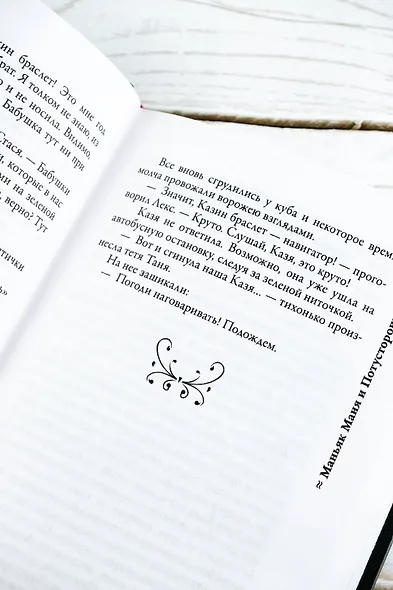 ин браслет! Это мне год
брат. Я толком не знаю, из
о и не носила. Видимо,
Бабушка тут ни при
Стася. — Бабушки
й, которые в нас
ами на зеленой
, верно? Тут
тички
ь»
Все вновь сгрудились у куба и некоторое время
молча провожали ворожею взглядами.
— Значит, Казин браслет — навигатор! — прого-
ворил Лекс. — Круто. Слушай, Казя, это круто!
Казя не ответила. Возможно, она уже ушла на
автобусную остановку, следуя за зеленой ниточкой.
— Вот и сгинула наша Казя... — тихонько произ-
несла тетя Таня.
На нее зашикали:
— Погоди наговаривать! Подождем.
≈ Маньяк Маня и Потусторо